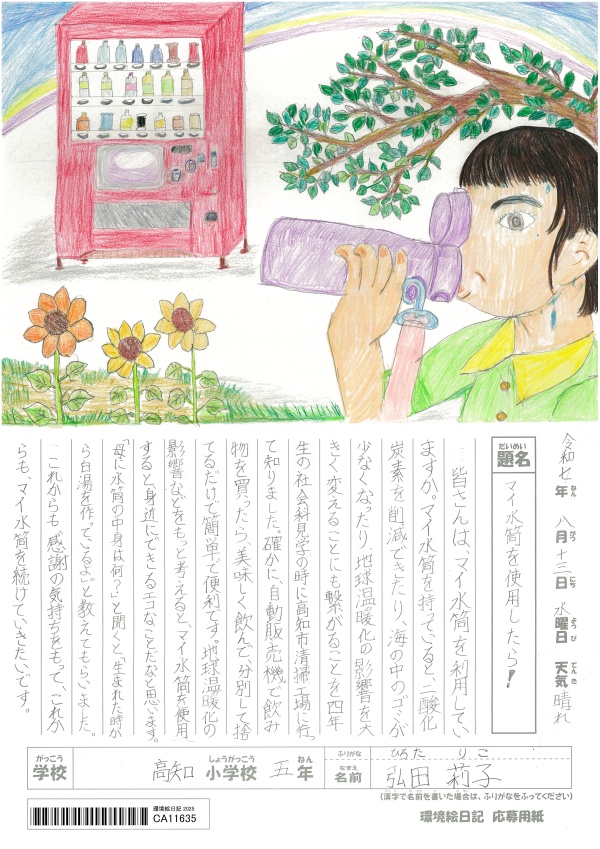 令和七年 八月十三日 水曜日 天気 晴れ
ねん がつ にち ようび てんき
だいめい
題名
マイ水筒を使用したら!
皆さんは、マイ水筒を利用してい
ますか。マイ水筒を持っていると、二酸化
炭素を削減できたり、海の中のゴミが
少なくなったり、地球温暖化の影響を大
きく変えることにも繋がることを四年
生の社会科見学の時に高知市清掃工場に行っ
て知りました。確かに、自動販売機で飲み
物を買ったら、美味しく飲んで、分別して捨
てるだけで簡単で便利です。地球温暖化の
影響などをもっと考えると、マイ水筒を使用
すると身近にできるエコなことだなと思います。
「母に水筒の中身は何?」と聞くと、「生まれた時か
ら白湯を作っているよ。」と教えてもらいました。
これからも感謝の気持ちをもって、これか
らも、マイ水筒を続けていきたいです。
がっこう しょうがっこう ねん ふりがな ひろた りこ
学校 高知 小学校 五年 名前 弘田 莉子
なまえ
(漢字で名前を書いた場合は、ふりがなをふってください)
環境絵日記 2025
CA11635
環境絵日記 応募用紙